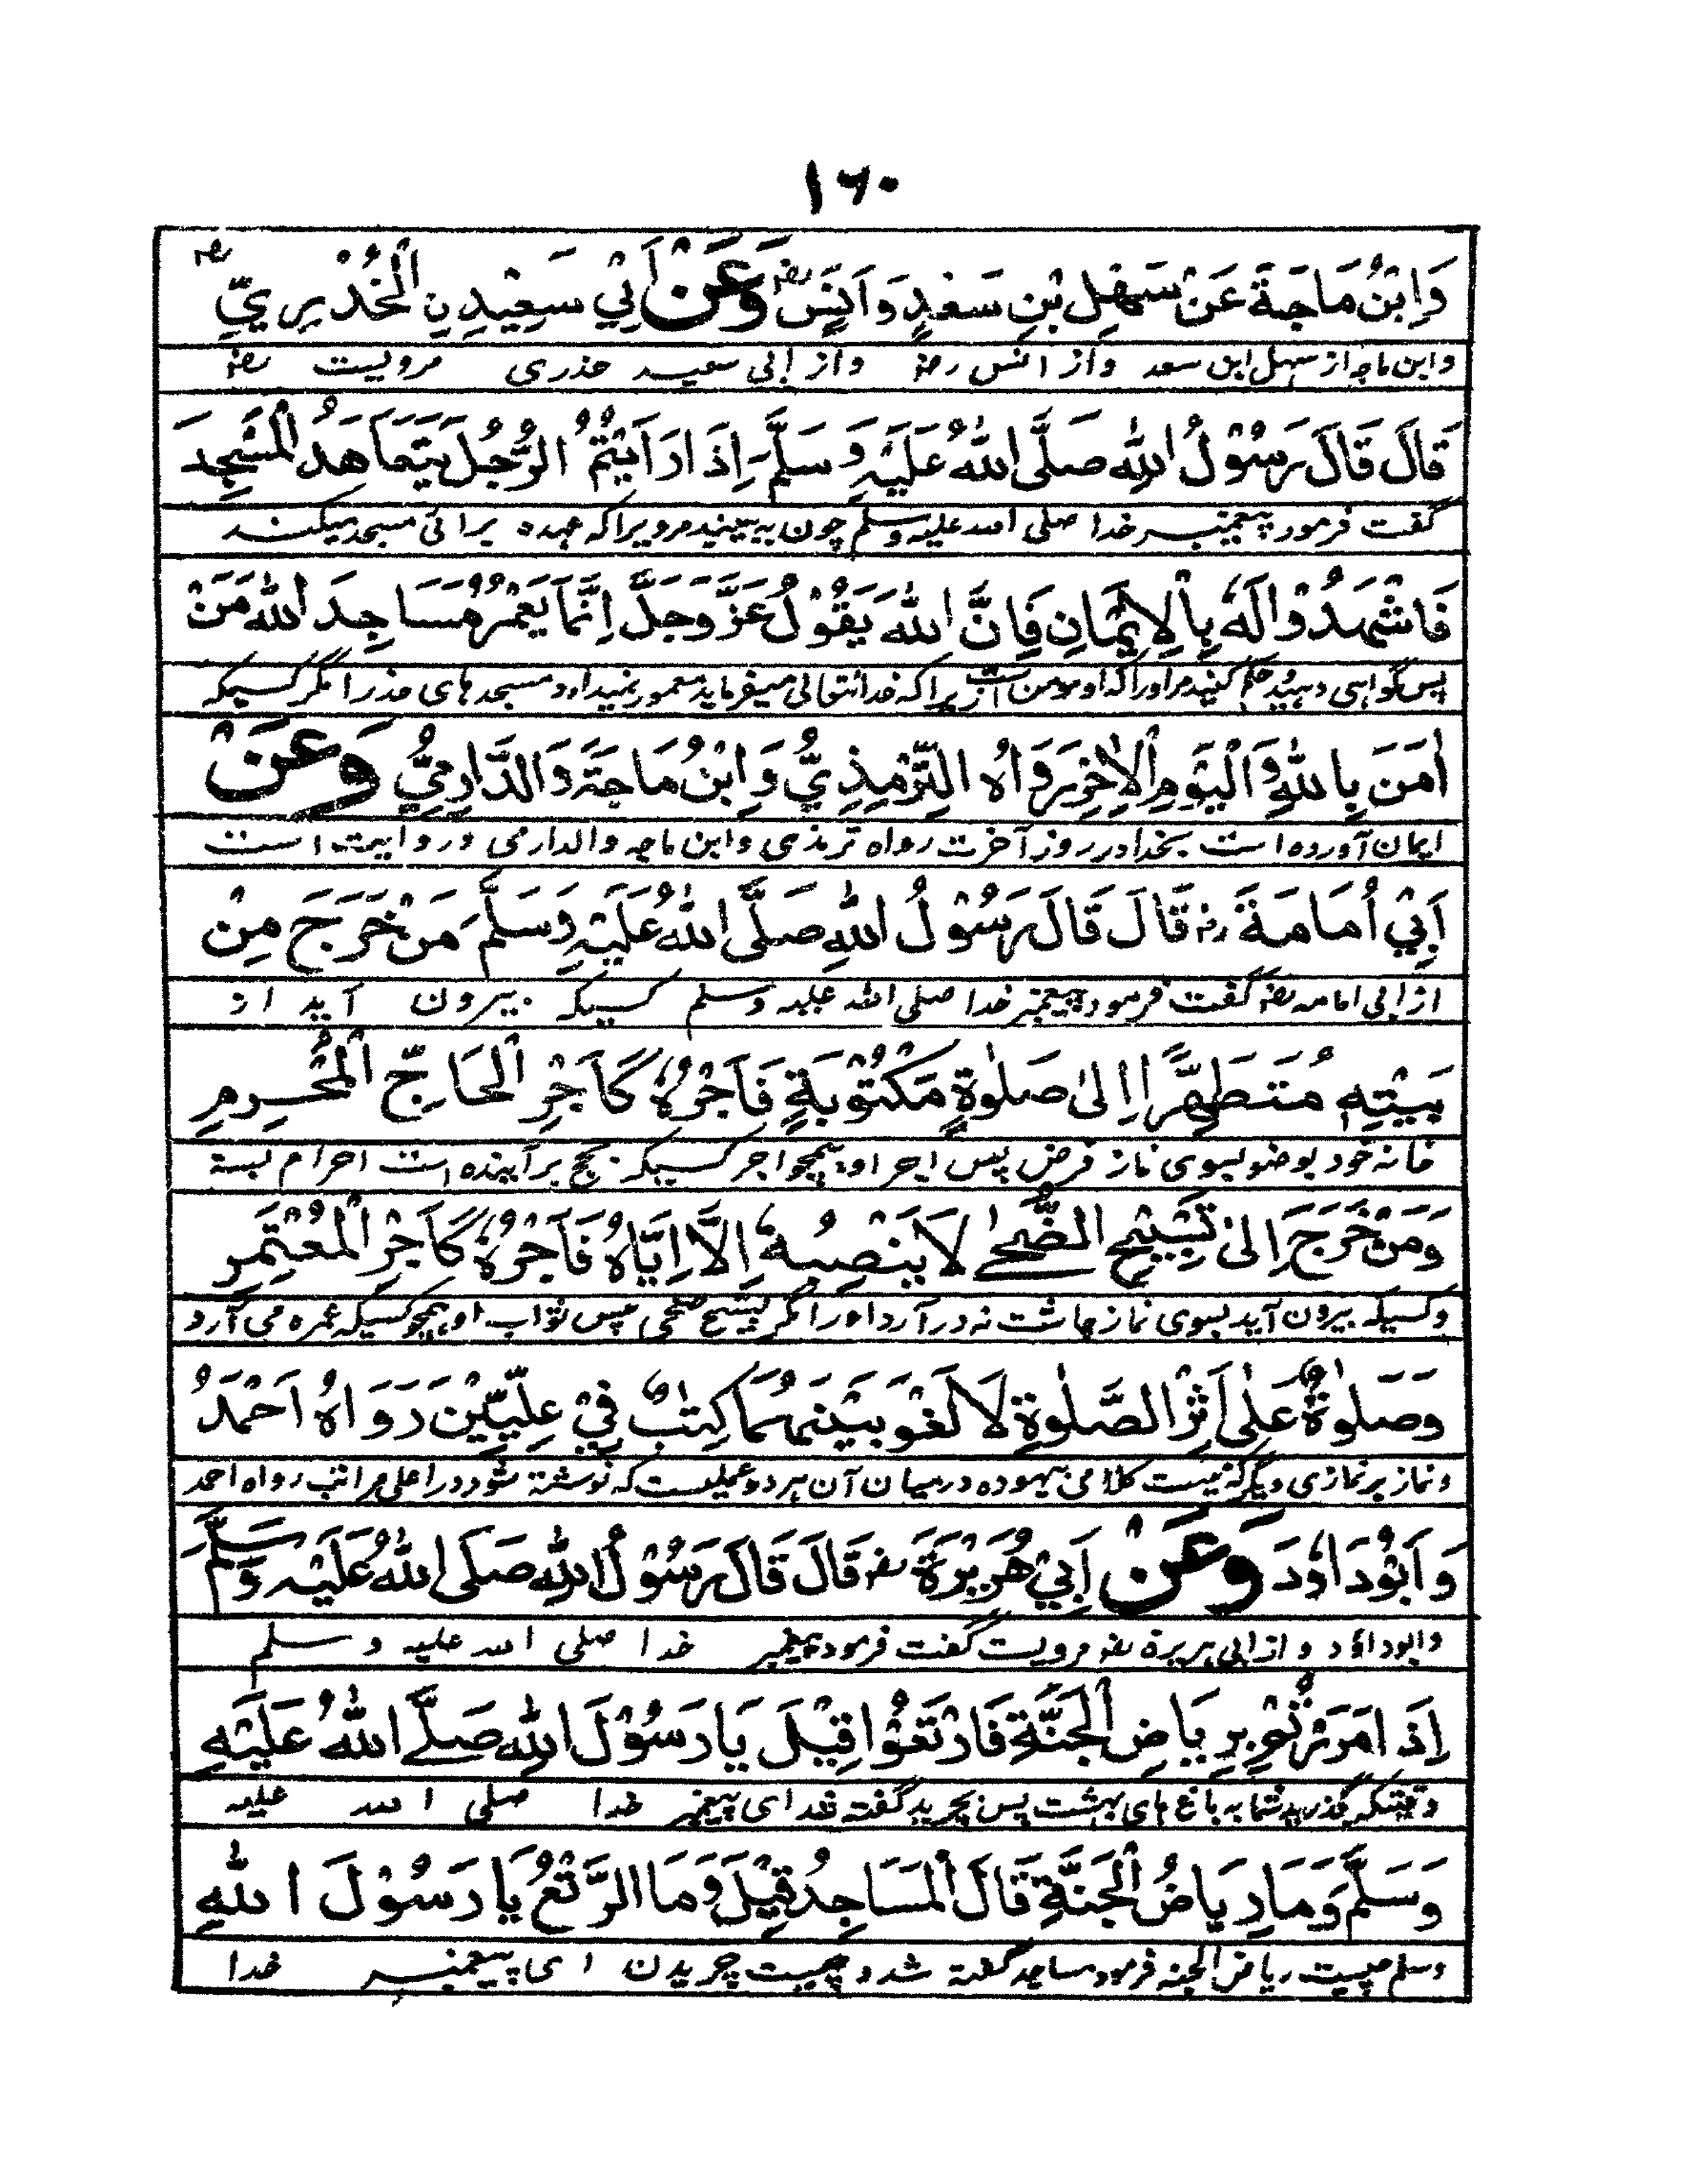 ۱۶۰
وَابْنُ مَاجَةَ عَنْ سَهْلِ بْنِ سَعْدٍ وَاَنَسٍ رضہ وَعَنْ اَبِيْ سَعِيْدِنِ الْخُدْرِيِّ رضہ
وابن ماجہ از سہل ابن سعد واز انس رضہ واز ابی سعید خدری مرویست رضہ
قَالَ قَالَ رَسُوْلُ اللهِ صَلَّى اللهُ عَلَيْهِ وَسَلَّمَ اِذَا رَاَيْتُمُ الرَّجُلَ يَتَعَاهَدُ الْمَسْجِدَ
گفت فرمود پیغمبر خدا صلی الله علیه وسلم چون به بینید مرویرا که عهده برائی مسجد میکند
فَاشْهَدُوْا لَهٗ بِالْاِيْمَانِ فَاِنَّ اللهَ يَقُوْلُ عَزَّ وَجَلَّ اِنَّمَا يَعْمُرُ مَسَاجِدَ اللهِ مَنْ
پس گواهی دهید حکم کنید مر اورا که او مومن است زیرا که خدایتعالی میفرماید معمور نمیدارد مسجدهای خدرا مگر کسیکه
اٰمَنَ بِاللهِ وَالْيَوْمِ الْاٰخِرِ رَوَاهُ التِّرْمِذِيُّ وَابْنُ مَاجَةَ وَالدَّارِمِيُّ وَعَنْ
ایمان آورده است بخدا در روز آخرت رواه ترمذی وابن ماجه والدارمی و روایت است
اَبِيْ اُمَامَةَ رضہ قَالَ قَالَ رَسُوْلُ اللهِ صَلَّى اللهُ عَلَيْهِ وَسَلَّمَ مَنْ خَرَجَ مِنْ
از ابی امامه رضہ گفت فرمود پیغمبر خدا صلی الله علیه وسلم کسیکه بیرون آید از
بَيْتِهٖ مُتَطَهِّرًا اِلٰى صَلٰوةٍ مَكْتُوْبَةٍ فَاَجْرُهٗ كَاَجْرِ الْحَاجِّ الْمُحْرِمِ
خانه خود بوضو بسوی نماز فرض پس اجر او همچو اجر کسیکه بحج برآینده است احرام بسته
وَمَنْ خَرَجَ اِلٰى تَسْبِيْحِ الضُّحٰى لَا يَنْصِبُهٗ اِلَّا اِيَّاهُ فَاَجْرُهٗ كَاَجْرِ الْمُعْتَمِرِ
وکسیکه بیرون آید بسوی نماز چاشت نه درآرد اورا مگر تسبیح ضحی پس ثواب او همچو کسیکه عمره می آرد
وَصَلٰوةٌ عَلٰى اَثْرِ الصَّلٰوةِ لَا لَغْوَ بَيْنَهُمَا كِتٰبٌ فِيْ عِلِّيِّيْنَ رَوَاهُ اَحْمَدُ
ونماز بر نمازی دیگر که نیست کلامی بیهوده درمیان آن هردو عملیست که نوشته شود در اعلی مراتب رواه احمد
وَاَبُوْدَاوٗدَ وَعَنْ اَبِيْ هُرَيْرَةَ رضہ قَالَ قَالَ رَسُوْلُ اللهِ صَلَى اللهُ عَلَيْهِ وَسَلَّمَ
وابوداؤد و از ابی هریرة رضہ مرویست گفت فرمود پیغمبر خدا صلی الله علیه وسلم
اِذَا مَرَرْتُمْ بِرِيَاضِ الْجَنَّةِ فَارْتَعُوْا قِيْلَ يَا رَسُوْلَ اللهِ صَلَّى اللهُ عَلَيْهِ
وقتیکه گذرید شما به باغ های بهشت پس بچرید گفته شد ای پیغمبر خدا صلی الله علیه
وَسَلَّمَ وَمَا رِيَاضُ الْجَنَّةِ قَالَ الْمَسَاجِدُ قِيْلَ وَمَا الرَّتْعُ يَا رَسُوْلَ اللهِ
وسلم چیست ریاض الجنه فرمود مساجد گفته شد و چیست چریدن ای پیغمبر خدا